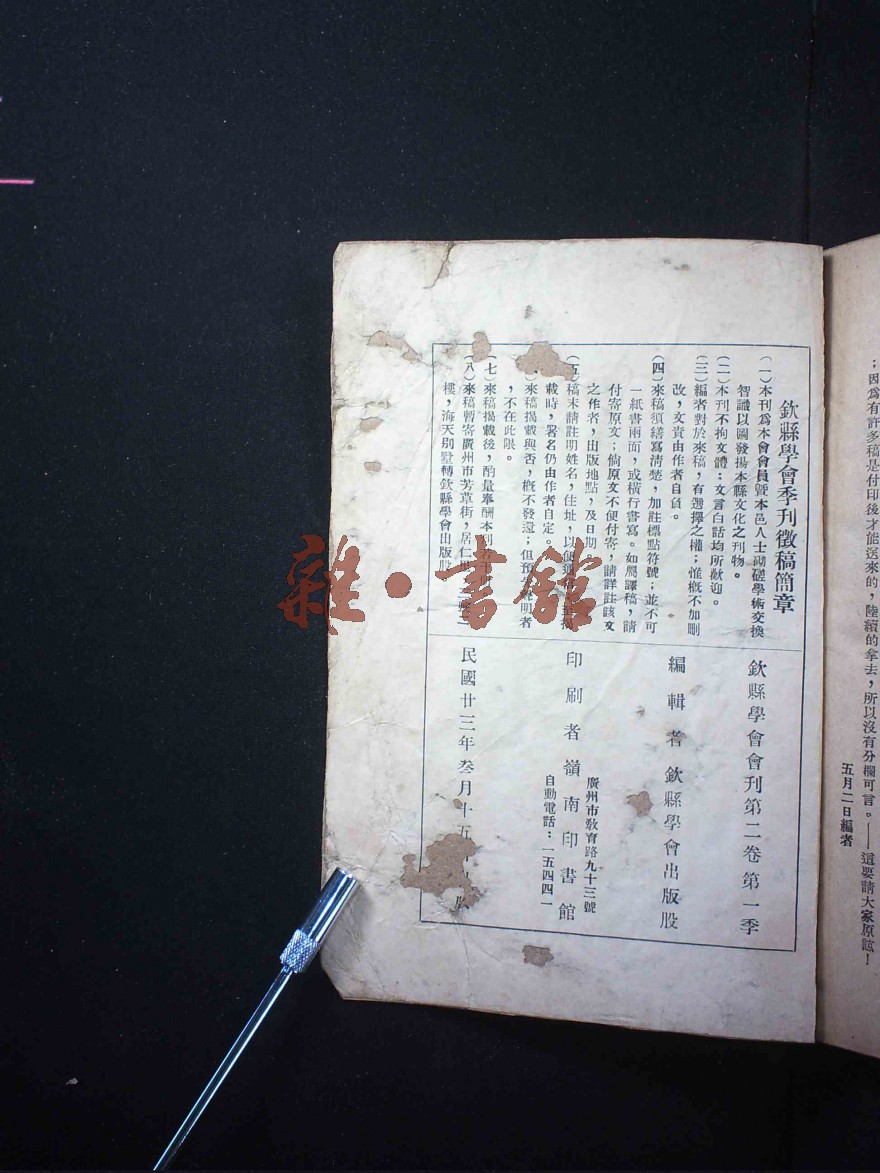 ；因爲有許多稿是付印後才能送來的，陸續的拿去，所以沒有分欄可言。——這要請大家原諒！
五月二日編者
欽縣學會季刊徵稿簡章
（一）本刊爲本會會員暨本邑人士砌磋學術交換
智識以圖發揚本縣文化之刊物。
（二）本刊不拘文體：文言白話均所歡迎。
（三）編者對於來稿，有選擇之權；惟概不加刪
改，文責由作者自負。
（四）來稿須繕寫清楚，加註標點符號；並不可
一紙書兩面，或橫行書寫。如屬譯稿，請
付寄原文；倘原文不便付寄，請詳註該文
之作者，出版地點，及日期。
（五）稿末請註明姓名，住址，以便通
載時，署名仍由作者自定。
來稿揭載與否，概不發還；但預 明者
，不在此限。
（七）來稿揭載後，酌量奉酬本刊若干
（八）來稿暫寄廣州市芳草街，居仁
樓，海天別墅轉欽縣學會出版股
欽縣學會會刊第二卷第一季
編輯者 欽縣學會出版股
印刷者 嶺南印書館
廣州市敎育路九十三號
自動電話：一五四四一
民國廿三年叁月十五 版
雜·書館